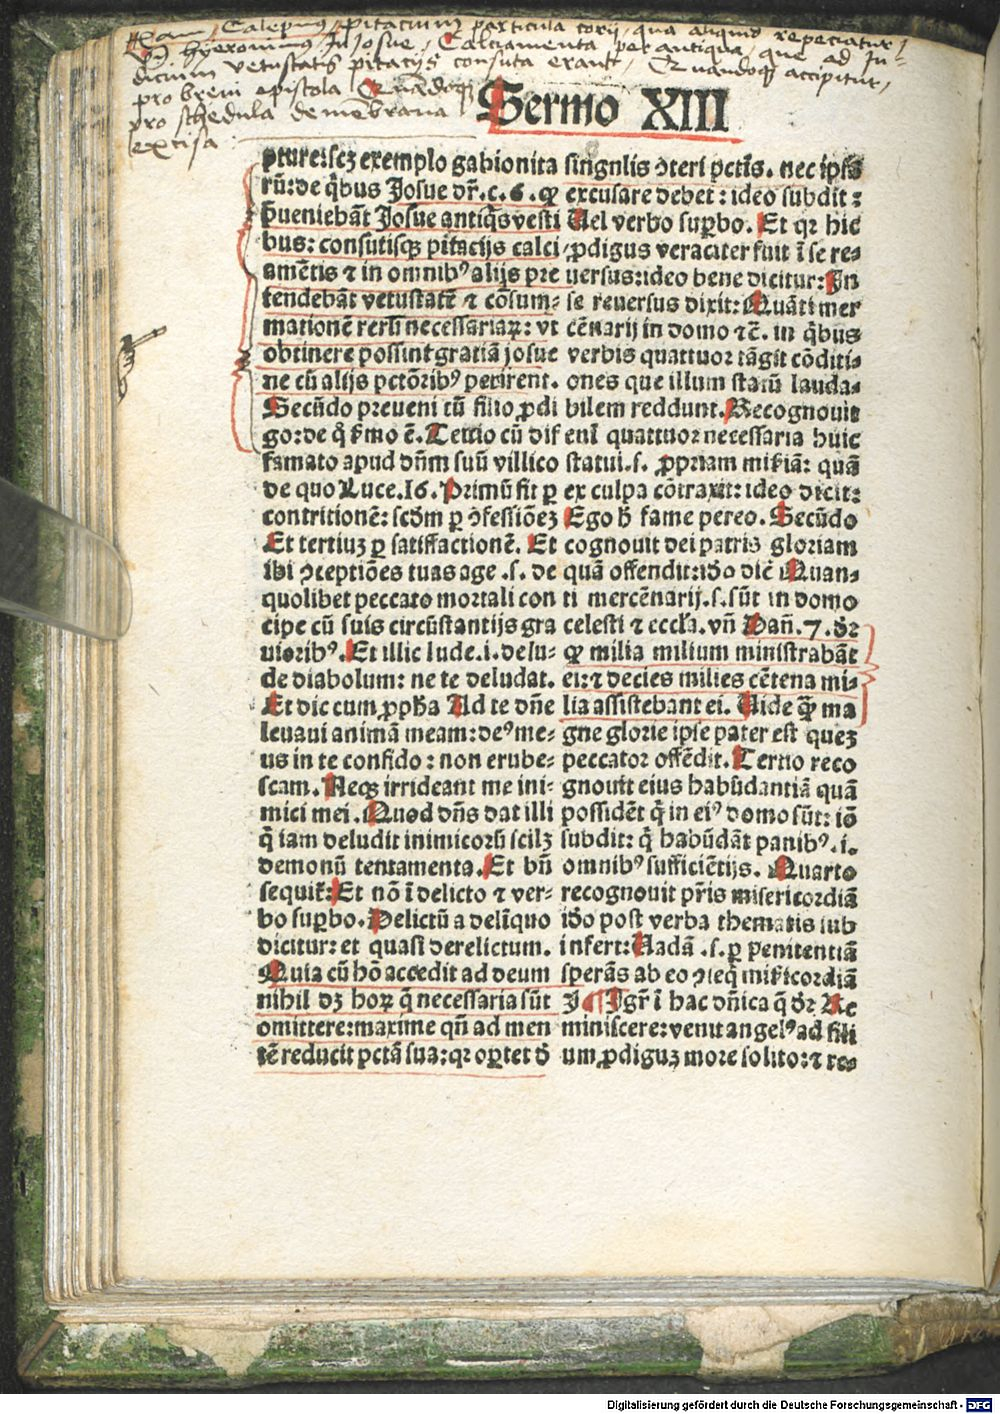 Nam Calepinus, pitacium particula corij, qua aliquid repeciatur /
Vn̄ hyeronimus In Josue, Calciamenta perantiqua, que ad In-
dicium vetustatis pitacijs consuta erant, Quandoqȝ accipitur,
pro brevi epistola Quandoqȝ
pro schedula de membrana
excisa
Sermo XIII
pture: scȝ exemplo gabionita
rū: de q̄bus Josue dr̄. c. 6. ꝙ
p̄ueniebāt Josue antiq̄s vesti
bus: consutisqȝ pitacijs calci
amētis ⁊ in omnibꝰ alijs pre
tendebāt vetustatē ⁊ cōsum-
mationē rerū necessariaꝝ: vt
obtinere possint gratiā josue
ne cū alijs pctōribꝰ perirent.
Secūdo preueni tū filio ꝓdi
go: de q̄ s̄mo ē. Tertio cū dif
famato apud dn̄m suū villico
de quo Luce. 16. Primū fit ꝑ
contritionē: scd̄m ꝑ ↄfessiōeȝ
Et tertiuȝ ꝑ satiffactionē. Et
ibi ↄceptiōes tuas age .s. de
quolibet peccato mortali con
cipe cū suis circūstantijs gra
uioribꝰ. Et illic lude .i. delu-
de diabolum: ne te deludat.
Et dic cum ꝓpha Ad te dn̄e
leuaui animā meam: deꝰ me-
us in te confido: non erube-
scam. Neqȝ irrideant me ini-
mici mei. Quod dn̄s dat illi
q̄ iam deludit inimicorū scilȝ
demonū tentamenta. Et bn̄
sequit᷑: Et nō ī delicto ⁊ ver-
bo suꝑbo. Delictū a delīquo
dicitur: et quasi derelictum.
Quia cū hō accedit ad deum
nihil dȝ hoꝝ q̄ necessaria sūt
omittere: maxime qn̄ ad men
tē reducit pctā sua: qꝛ oꝑtet d̄
singulis ↄteri pctīs. nec ipsa
excusare debet: ideo subdit:
Uel verbo suꝑbo. Et qꝛ hic
ꝓdigus veraciter fuit ī se re-
uersus: ideo bene dicitur: In
se reuersus dixit: Quāti mer
cēnarij in domo ⁊c̄. in q̄bus
verbis quattuor tāgit cōditi-
ones que illum statū lauda-
bilem reddunt. Recognouit
enī quattuor necessaria huic
statui. s. ꝓpriam mis̄iā: quā
ex culpa cōtraxit: ideo dicit:
Ego h̄ fame pereo. Secūdo
cognouit dei patris gloriam
quā offendit: iō dic̄ Quan-
ti mercēnarij. s. sūt in domo
celesti ⁊ eccl̄a. vn̄ Dan̄. 7. dr̄
ꝙ milia milium ministrabāt
ei: ⁊ decies milies cētena mi-
lia assistebant ei. Uide ꝙ̄ ma
gne glorie ipse pater est queȝ
peccator offēdit. Tertio reco
gnouit eius habūdantiā quā
possidēt q̄ in eiꝰ domo sūt: iō
subdit: q̄ habūdāt panibꝰ .i.
omnibꝰ sufficiētijs. Quarto
recognouit pr̄is misericordiā
iō post verba thematis sub
infert: Uadā .s. ꝑ penitentiā
sperās ab eo ↄseq̄ mis̄icordiā
J ¶ Igr̄ ī hac dn̄ica q̄ dr̄ Re
miniscere: venit angelꝰ ad fili
um ꝓdiguȝ more solito: ⁊ re-
Digitalisierung gefördert durch die Deutsche Forschungsgemeinschaft - DFG